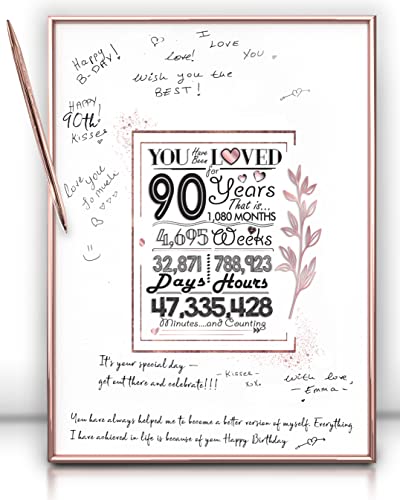 Happy
B-DAY!
I
LOVE
YOU
love!
Wish you the
BEST!
HAPPY
90th
Kisses
love you
So much
YOU Have Been LOVED
for
90 Years
That is...
1,080 MONTHS
4,695 Weeks
32,871 788,923
Days Hours
47,335,428
Minutes....and Counting
It's your special day —
get out there and celebrate!!!
- Kisses -
xox
With love,
- Emma -
You have always helped me to become a better version of myself. Everything
I have achieved in life is because of you Happy Birthday